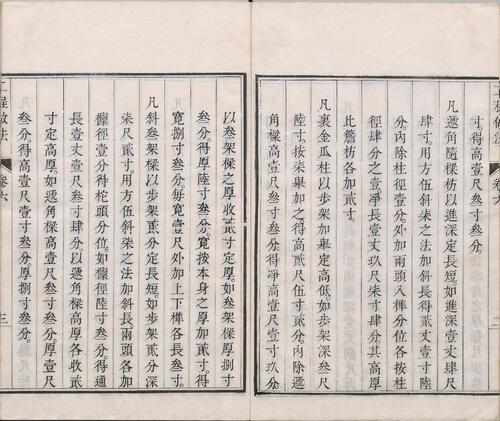 寸得高壹尺叁寸叁分
凡遞角隨樑枋以進深定長短如進深壹丈肆尺
肆寸用方伍斜柒之法加斜長得貳丈壹寸陸
分內除柱徑壹分外加兩頭入榫分位各按柱
徑肆分之壹淨長壹丈玖尺柒寸肆分其高厚
比簷枋各加貳寸
凡裏金瓜柱以步架加舉定高低如步架深叁尺
陸寸按柒舉加之得高貳尺伍寸貳分內除遞
角樑高壹尺叁寸叁分得淨高壹尺壹寸玖分
以叁架樑之厚收貳寸定厚如叁架樑厚捌寸
叁分得厚陸寸叁分寬按本身之厚加貳寸得
寬捌寸叁分每寬壹尺外加上下榫各長叁寸
凡斜叁架樑以步架貳分定長短如步架貳分深
柒尺貳寸用方伍斜柒之法加斜長兩頭各加
檁徑壹分得柁頭分位如檁徑陸寸叁分得通
長壹丈壹尺叁寸肆分以遞角樑高厚各收貳
寸定高厚如遞角樑高壹尺叁寸叁分厚壹尺
叁分得高壹尺壹寸叁分厚捌寸叁分
工程做法
卷六
三